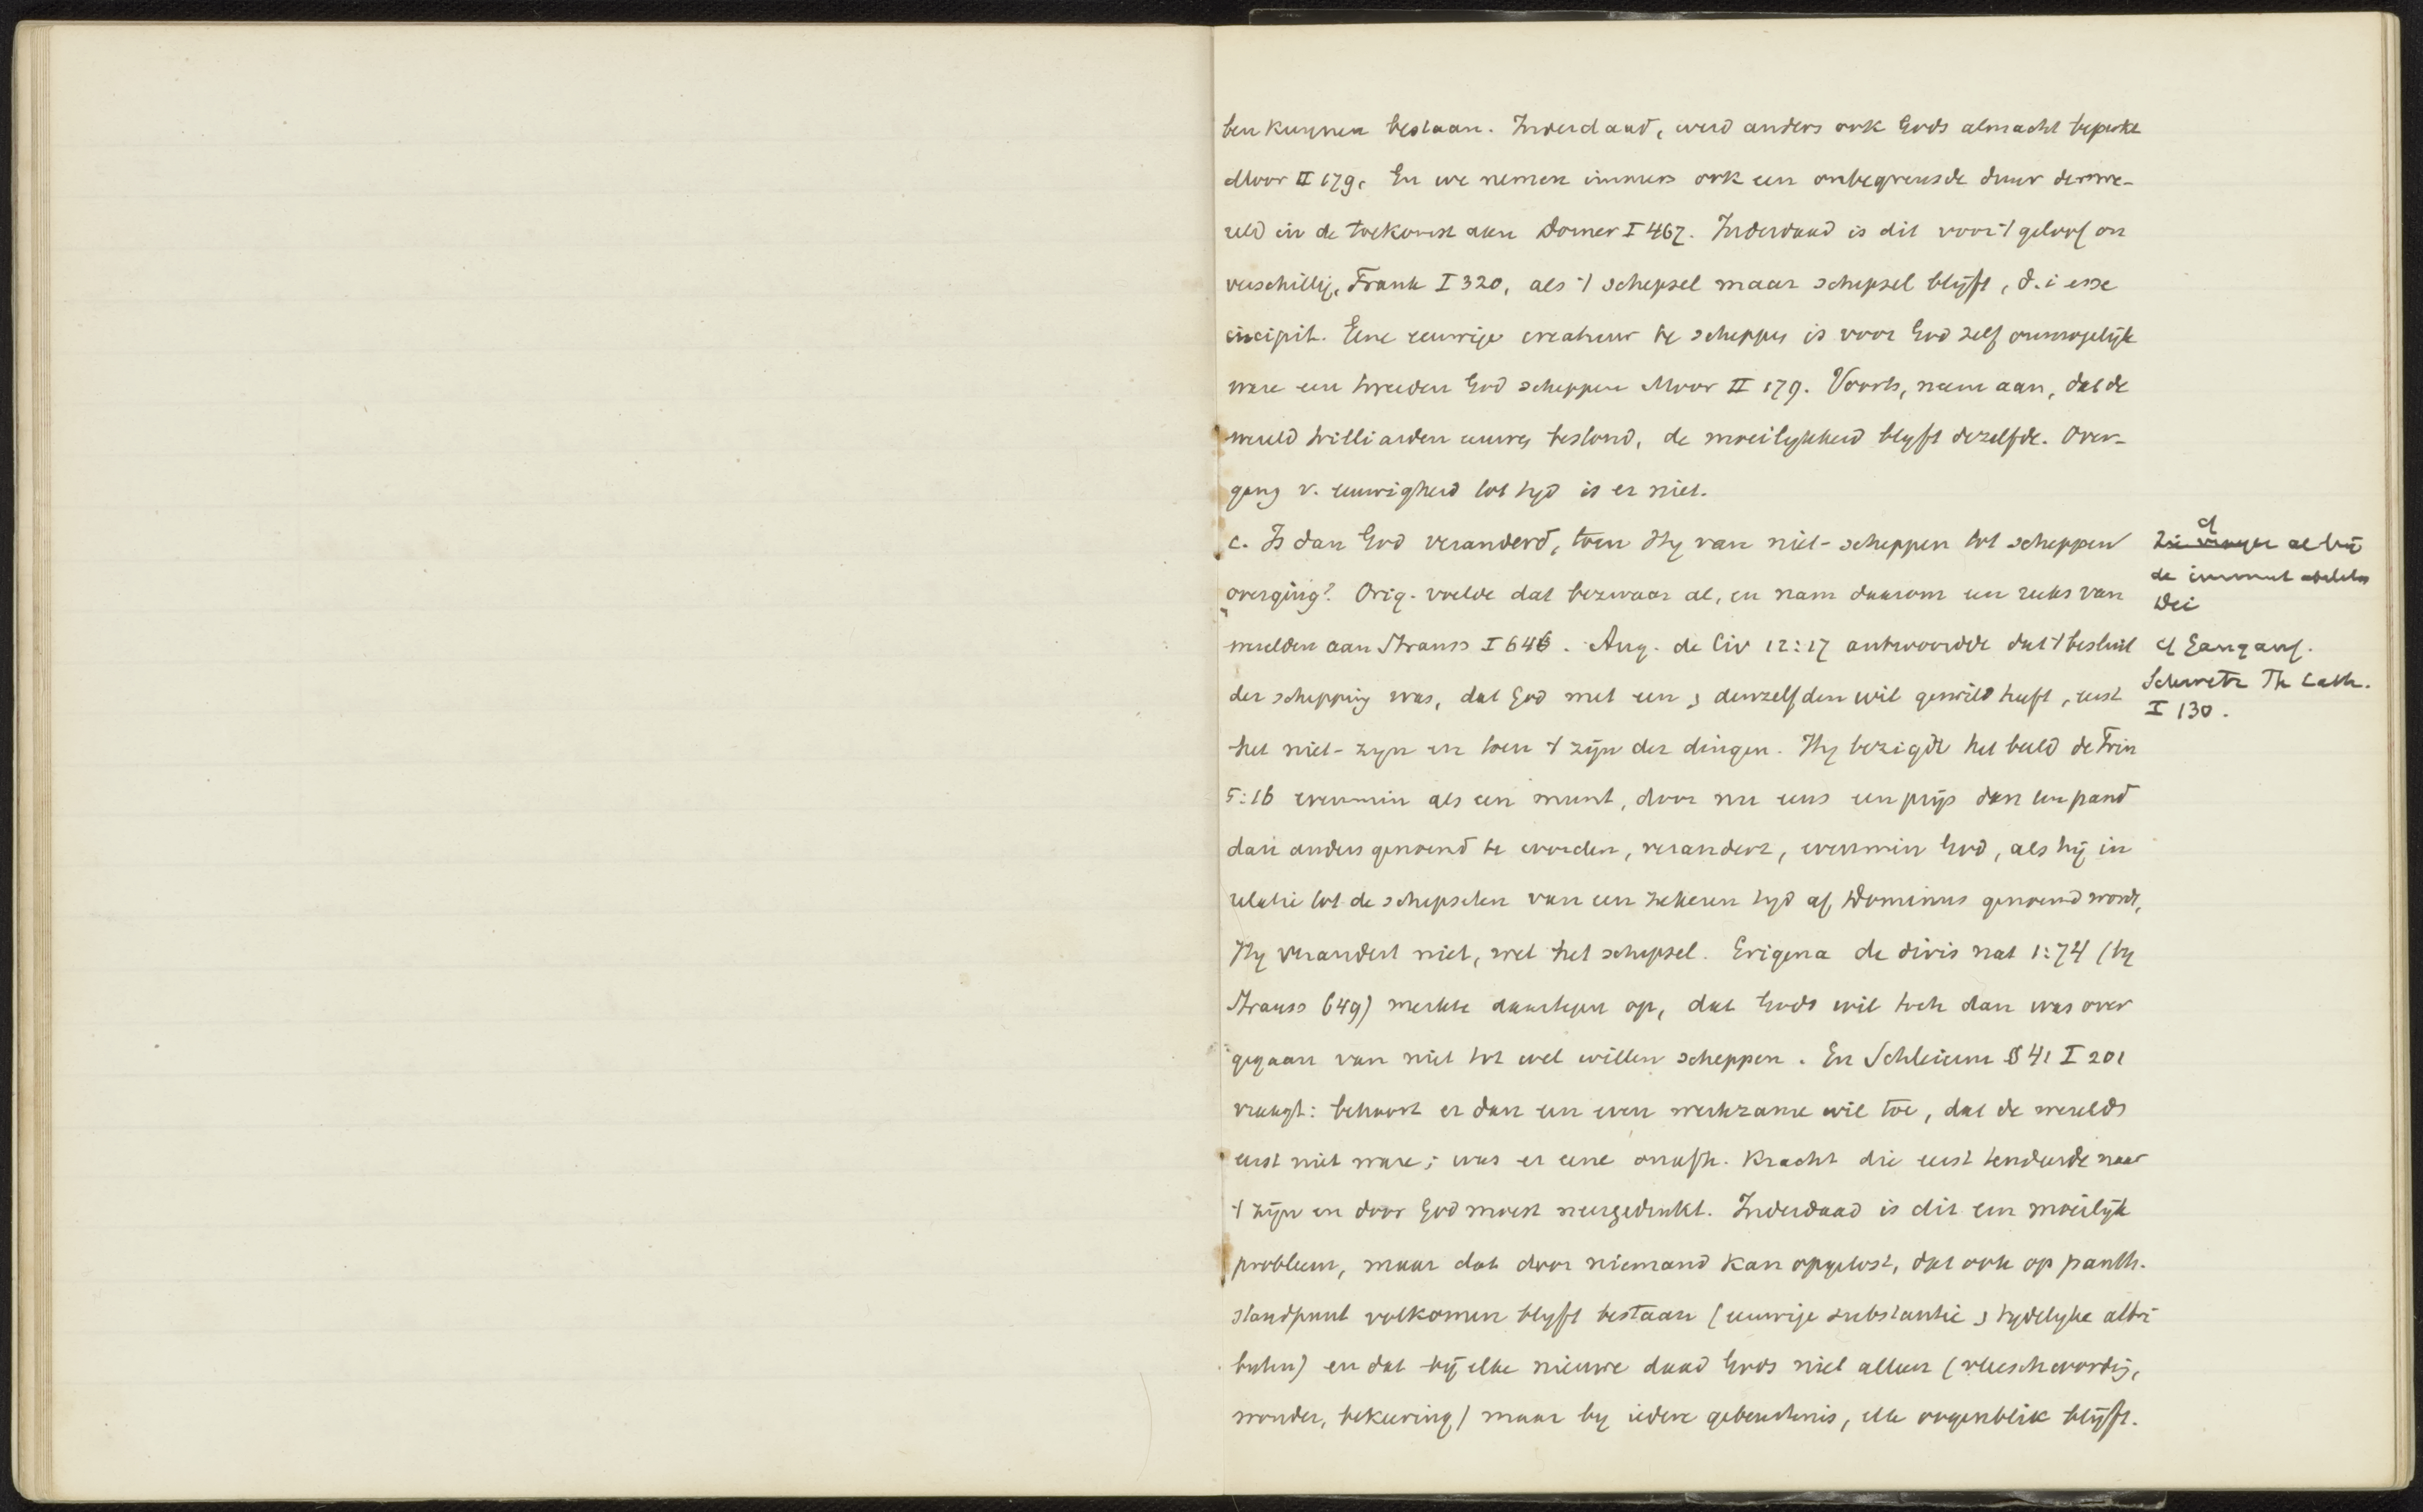 ben kunnen bestaan. Inderdaad, werd anders ook Gods almacht beperkt
Moor II 179. En we nemen immers ook een onbegrensde duur der we-
reld in de toekomst aan Dorner I 467. Inderdaad is dit voor 't geloof on
verschillig, Frank I 320, als 't schepsel maar schepsel blijft, d. i esse
incipit. Eene eeuwige creatuur te scheppen is voor God zelf onmogelijk
ware een tweeden God scheppen Moor II 179. Voorts, neem aan, dat de
wereld trilliarden eeuwen bestond, de moeilykheid blyft dezelfde. Over-
gang v. eeuwigheid tot tyd is er niet.
c. Is dan God veranderd, toen Hy van niet-scheppen tot scheppen
overging? Orig. voelde dat bezwaar al, en nam daarom een reeks van
werelden aan Strauss I 646. Aug. de Civ 12:17 antwoordde dat 't besluit
der schepping was, dat God met een & denzelfden wil gewild heeft, eerst
het niet-zyn en toen 't zijn der dingen. Hy bezigde het beeld de Trin
5:16 evenmin als een munt, door nu eens een prijs dan een pand
dan anders genoemd te worden, verandert, evenmin God, als hij in
relatie tot de schepselen van een zekeren tyd af Dominus genoemd wordt,
Hy verandert niet, wel het schepsel. Erigena de divis nat 1:74 (by
Strauss 649) merkte daartegen op, dat Gods wil toch dan was over
gegaan van niet tot wel willen scheppen. En Schleierm § 41 I 201
vraagt: behoort er dan een even werkzame wil toe, dat de werelds
eerst niet ware; was er eene onafh. kracht die eerst tendeerde naar
't zijn en door God moest neergedrukt. Inderdaad is dit een moeilijk
probleem, maar dat door niemand kan opgelost, dat ook op panth.
standpunt volkomen blyft bestaan (eeuwige substantie & tydelyke attri
buten) en dat bij elke nieuwe daad Gods niet alleen (vleeschwording,
wonder, bekeering) maar by iedere gebeurtenis, elk oogenblik blijft.
cf
Zie vroeger al bij
de immutabilitas
Dei
cf Gangauf.
Schwetz Th Cath.
I 130.